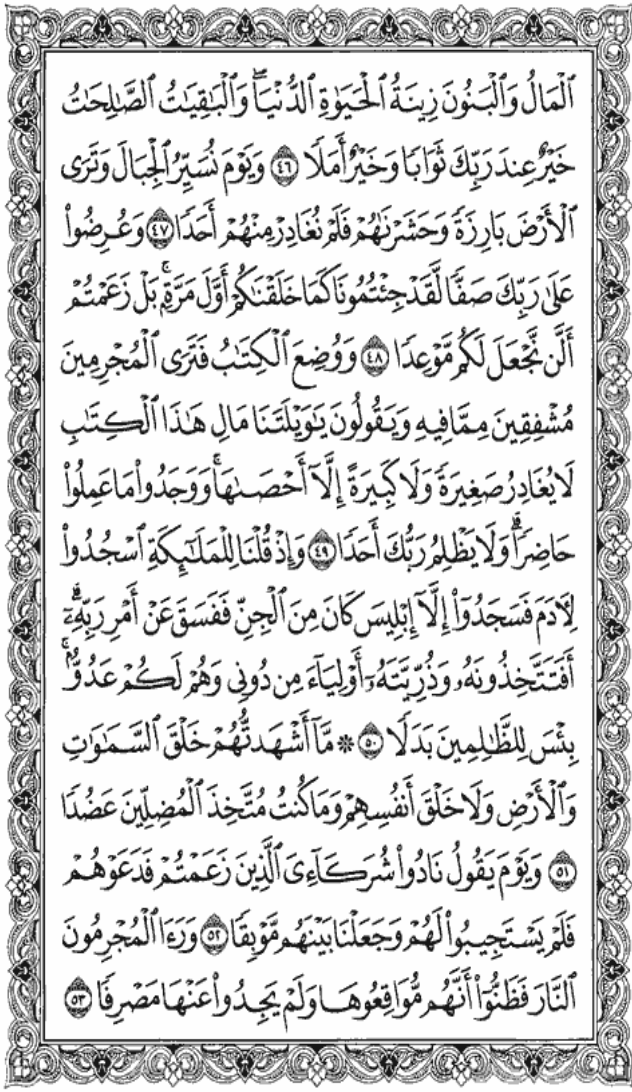 ٱلْمَالُ وَٱلْبَنُونَ زِينَةُ ٱلْحَيَوٰةِ ٱلدُّنْيَاۖ وَٱلْبَٰقِيَٰتُ ٱلصَّٰلِحَٰتُ
خَيْرٌ عِندَ رَبِّكَ ثَوَابًا وَخَيْرٌ أَمَلًا ٤٦ وَيَوْمَ نُسَيِّرُ ٱلْجِبَالَ وَتَرَى
ٱلْأَرْضَ بَارِزَةً وَحَشَرْنَٰهُمْ فَلَمْ نُغَادِرْ مِنْهُمْ أَحَدًا ٤٧ وَعُرِضُوا۟
عَلَىٰ رَبِّكَ صَفًّا لَّقَدْ جِئْتُمُونَا كَمَا خَلَقْنَٰكُمْ أَوَّلَ مَرَّةٍۭۚ بَلْ زَعَمْتُمْ
أَلَّن نَّجْعَلَ لَكُم مَّوْعِدًا ٤٨ وَوُضِعَ ٱلْكِتَٰبُ فَتَرَى ٱلْمُجْرِمِينَ
مُشْفِقِينَ مِمَّا فِيهِ وَيَقُولُونَ يَٰوَيْلَتَنَا مَالِ هَٰذَا ٱلْكِتَٰبِ
لَا يُغَادِرُ صَغِيرَةً وَلَا كَبِيرَةً إِلَّآ أَحْصَىٰهَاۚ وَوَجَدُوا۟ مَا عَمِلُوا۟
حَاضِرًاۗ وَلَا يَظْلِمُ رَبُّكَ أَحَدًا ٤٩ وَإِذْ قُلْنَا لِلْمَلَٰٓئِكَةِ ٱسْجُدُوا۟
لِءَادَمَ فَسَجَدُوٓا۟ إِلَّآ إِبْلِيسَ كَانَ مِنَ ٱلْجِنِّ فَفَسَقَ عَنْ أَمْرِ رَبِّهِۦٓۗ
أَفَتَتَّخِذُونَهُۥ وَذُرِّيَّتَهُۥٓ أَوْلِيَآءَ مِن دُونِى وَهُمْ لَكُمْ عَدُوٌّۢۚ
بِئْسَ لِلظَّٰلِمِينَ بَدَلًا ٥٠ ۞ مَّآ أَشْهَدتُّهُمْ خَلْقَ ٱلسَّمَٰوَٰتِ
وَٱلْأَرْضِ وَلَا خَلْقَ أَنفُسِهِمْ وَمَا كُنتُ مُتَّخِذَ ٱلْمُضِلِّينَ عَضُدًا
٥١ وَيَوْمَ يَقُولُ نَادُوا۟ شُرَكَآءِىَ ٱلَّذِينَ زَعَمْتُمْ فَدَعَوْهُمْ
فَلَمْ يَسْتَجِيبُوا۟ لَهُمْ وَجَعَلْنَا بَيْنَهُم مَّوْبِقًا ٥٢ وَرَءَا ٱلْمُجْرِمُونَ
ٱلنَّارَ فَظَنُّوٓا۟ أَنَّهُم مُّوَاقِعُوهَا وَلَمْ يَجِدُوا۟ عَنْهَا مَصْرِفًا ٥٣